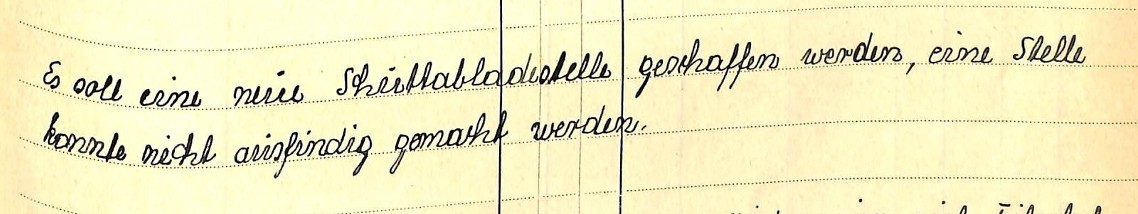 Es soll eine neue Schuttabladestelle geschaffen werden, eine Stelle
konnte nicht ausfindig gemacht werden.